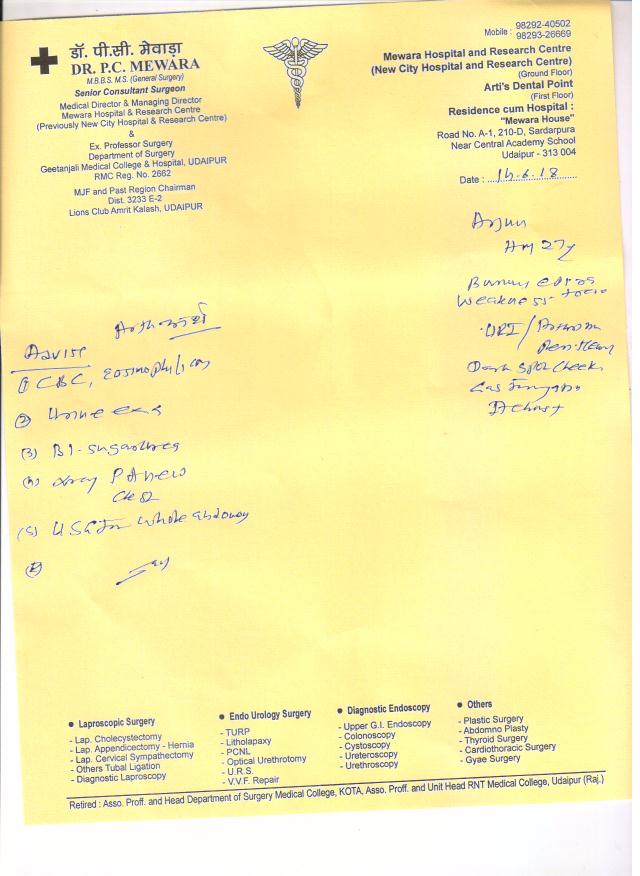 डॉ. पी.सी. मेवाड़ा
DR. P.C. MEWARA
M.B.B.S. M.S. (General Surgery)
Senior Consultant Surgeon
Medical Director & Managing Director
Mewara Hospital & Research Centre
(Previously New City Hospital & Research Centre)
&
Ex. Professor Surgery
Department of Surgery
Geetanjali Medical College & Hospital, UDAIPUR
RMC Reg. No. 2662
MJF and Past Region Chairman
Dist. 3233 E-2
Lions Club Amrit Kalash, UDAIPUR
Mobile : 98292-40502
98293-26669
Mewara Hospital and Research Centre
(New City Hospital and Research Centre)
(Ground Floor)
Arti's Dental Point
(First Floor)
Residence cum Hospital :
"Mewara House"
Road No. A-1, 210-D, Sardarpura
Near Central Academy School
Udaipur - 313 004
Date : 14.6.18
Arjun
27y
Weakness
URI /
Dark Spot Cheeks
Advise
(1) CBC,
(2) Urine
(3) Bl-sugar
(4) Xray
(5) USG Whole abdomen
• Laproscopic Surgery
- Lap. Cholecystectomy
- Lap. Appendicectomy - Hernia
- Lap. Cervical Sympathectomy
- Others Tubal Ligation
- Diagnostic Laproscopy
• Endo Urology Surgery
- TURP
- Litholapaxy
- PCNL
- Optical Urethrotomy
- U.R.S.
- V.V.F. Repair
• Diagnostic Endoscopy
- Upper G.I. Endoscopy
- Colonoscopy
- Cystoscopy
- Ureteroscopy
- Urethroscopy
• Others
- Plastic Surgery
- Abdomno Plasty
- Thyroid Surgery
- Cardiothoracic Surgery
- Gyae Surgery
Retired : Asso. Proff. and Head Department of Surgery Medical College, KOTA, Asso. Proff. and Unit Head RNT Medical College, Udaipur (Raj.)